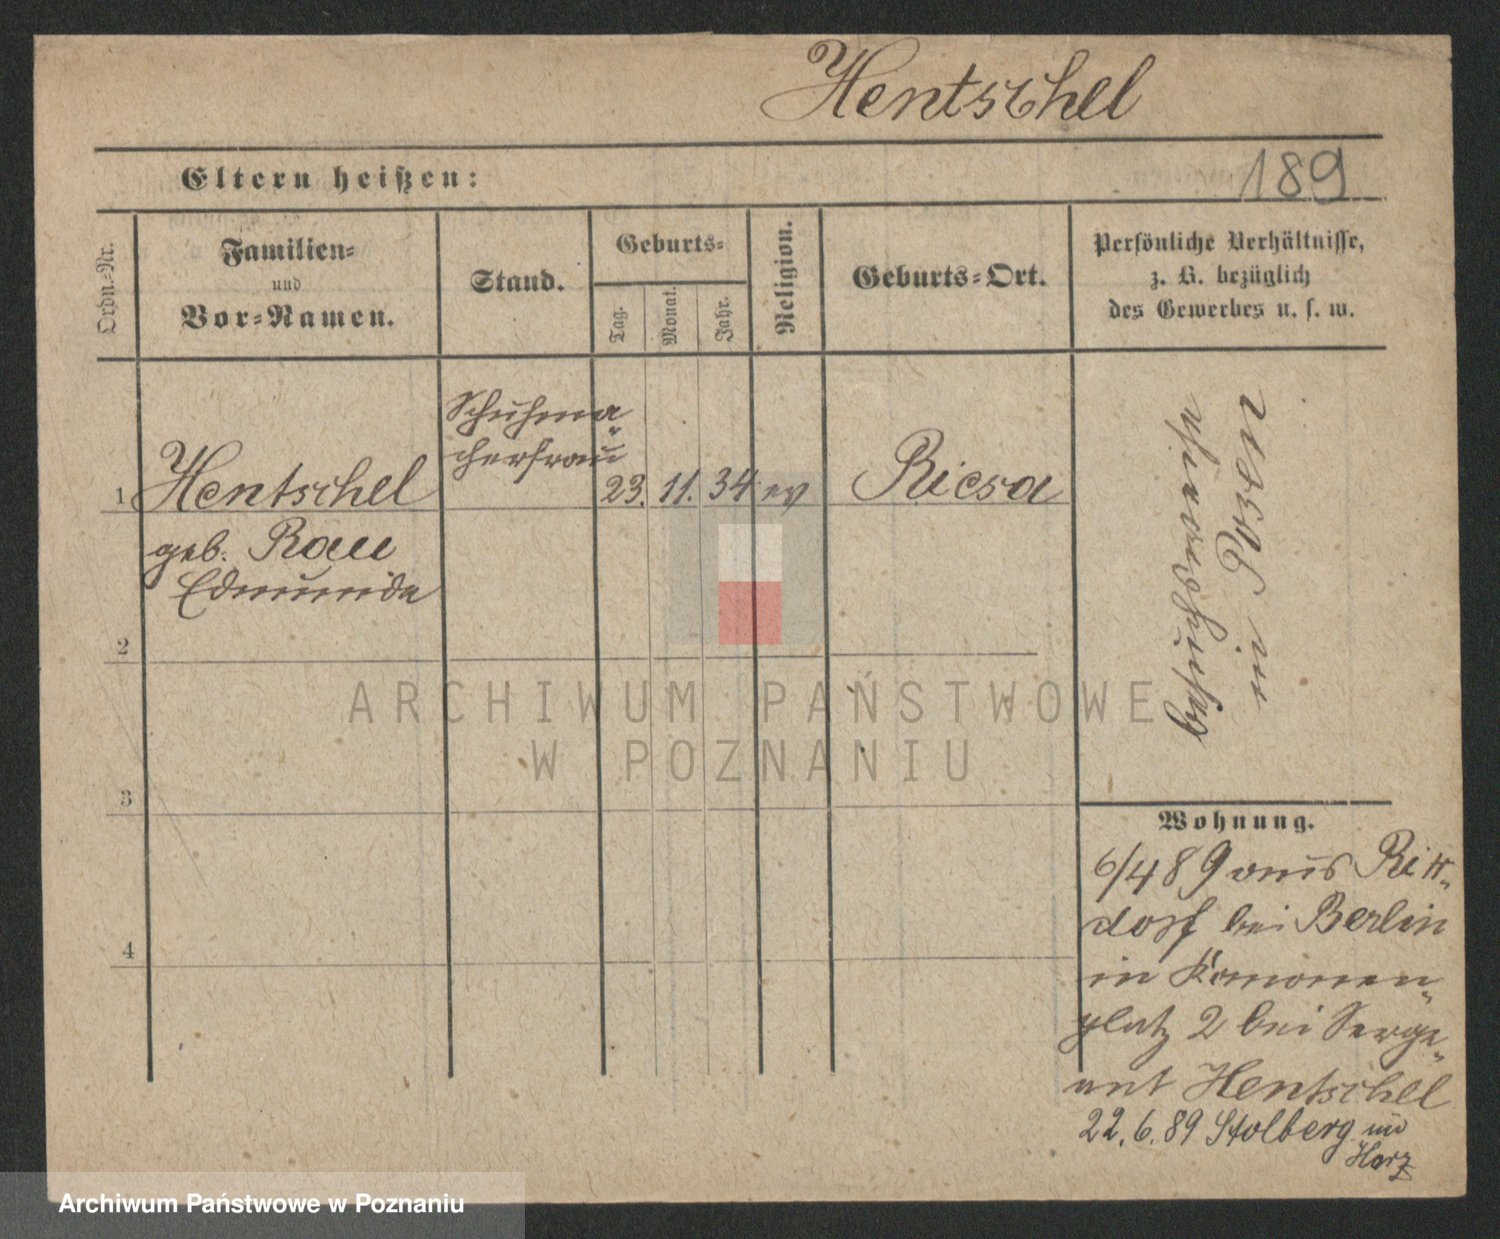 Hentschel
Eltern heißen:
189
Ordn.-Nr.
Familien-
und
Vor-Namen.
Stand.
Geburts-
Tag.
Monat.
Jahr.
Religion.
Geburts-Ort.
Persönliche Verhältnisse,
z. B. bezüglich
des Gewerbes u. s. w.
Schuhma-
cherfrau
1 Hentschel 23. 11. 34 ev Riesa
geb. Rau
Edmunde
2
3
4
in Posen
Wohnung.
6/4 89 aus Rix-
dorf bei Berlin
in Kanonen-
platz 2 bei Serge-
ant Hentschel
22. 6. 89 Stolberg im
Harz
ARCHIWUM PAŃSTWOWE
W POZNANIU
Archiwum Państwowe w Poznaniu